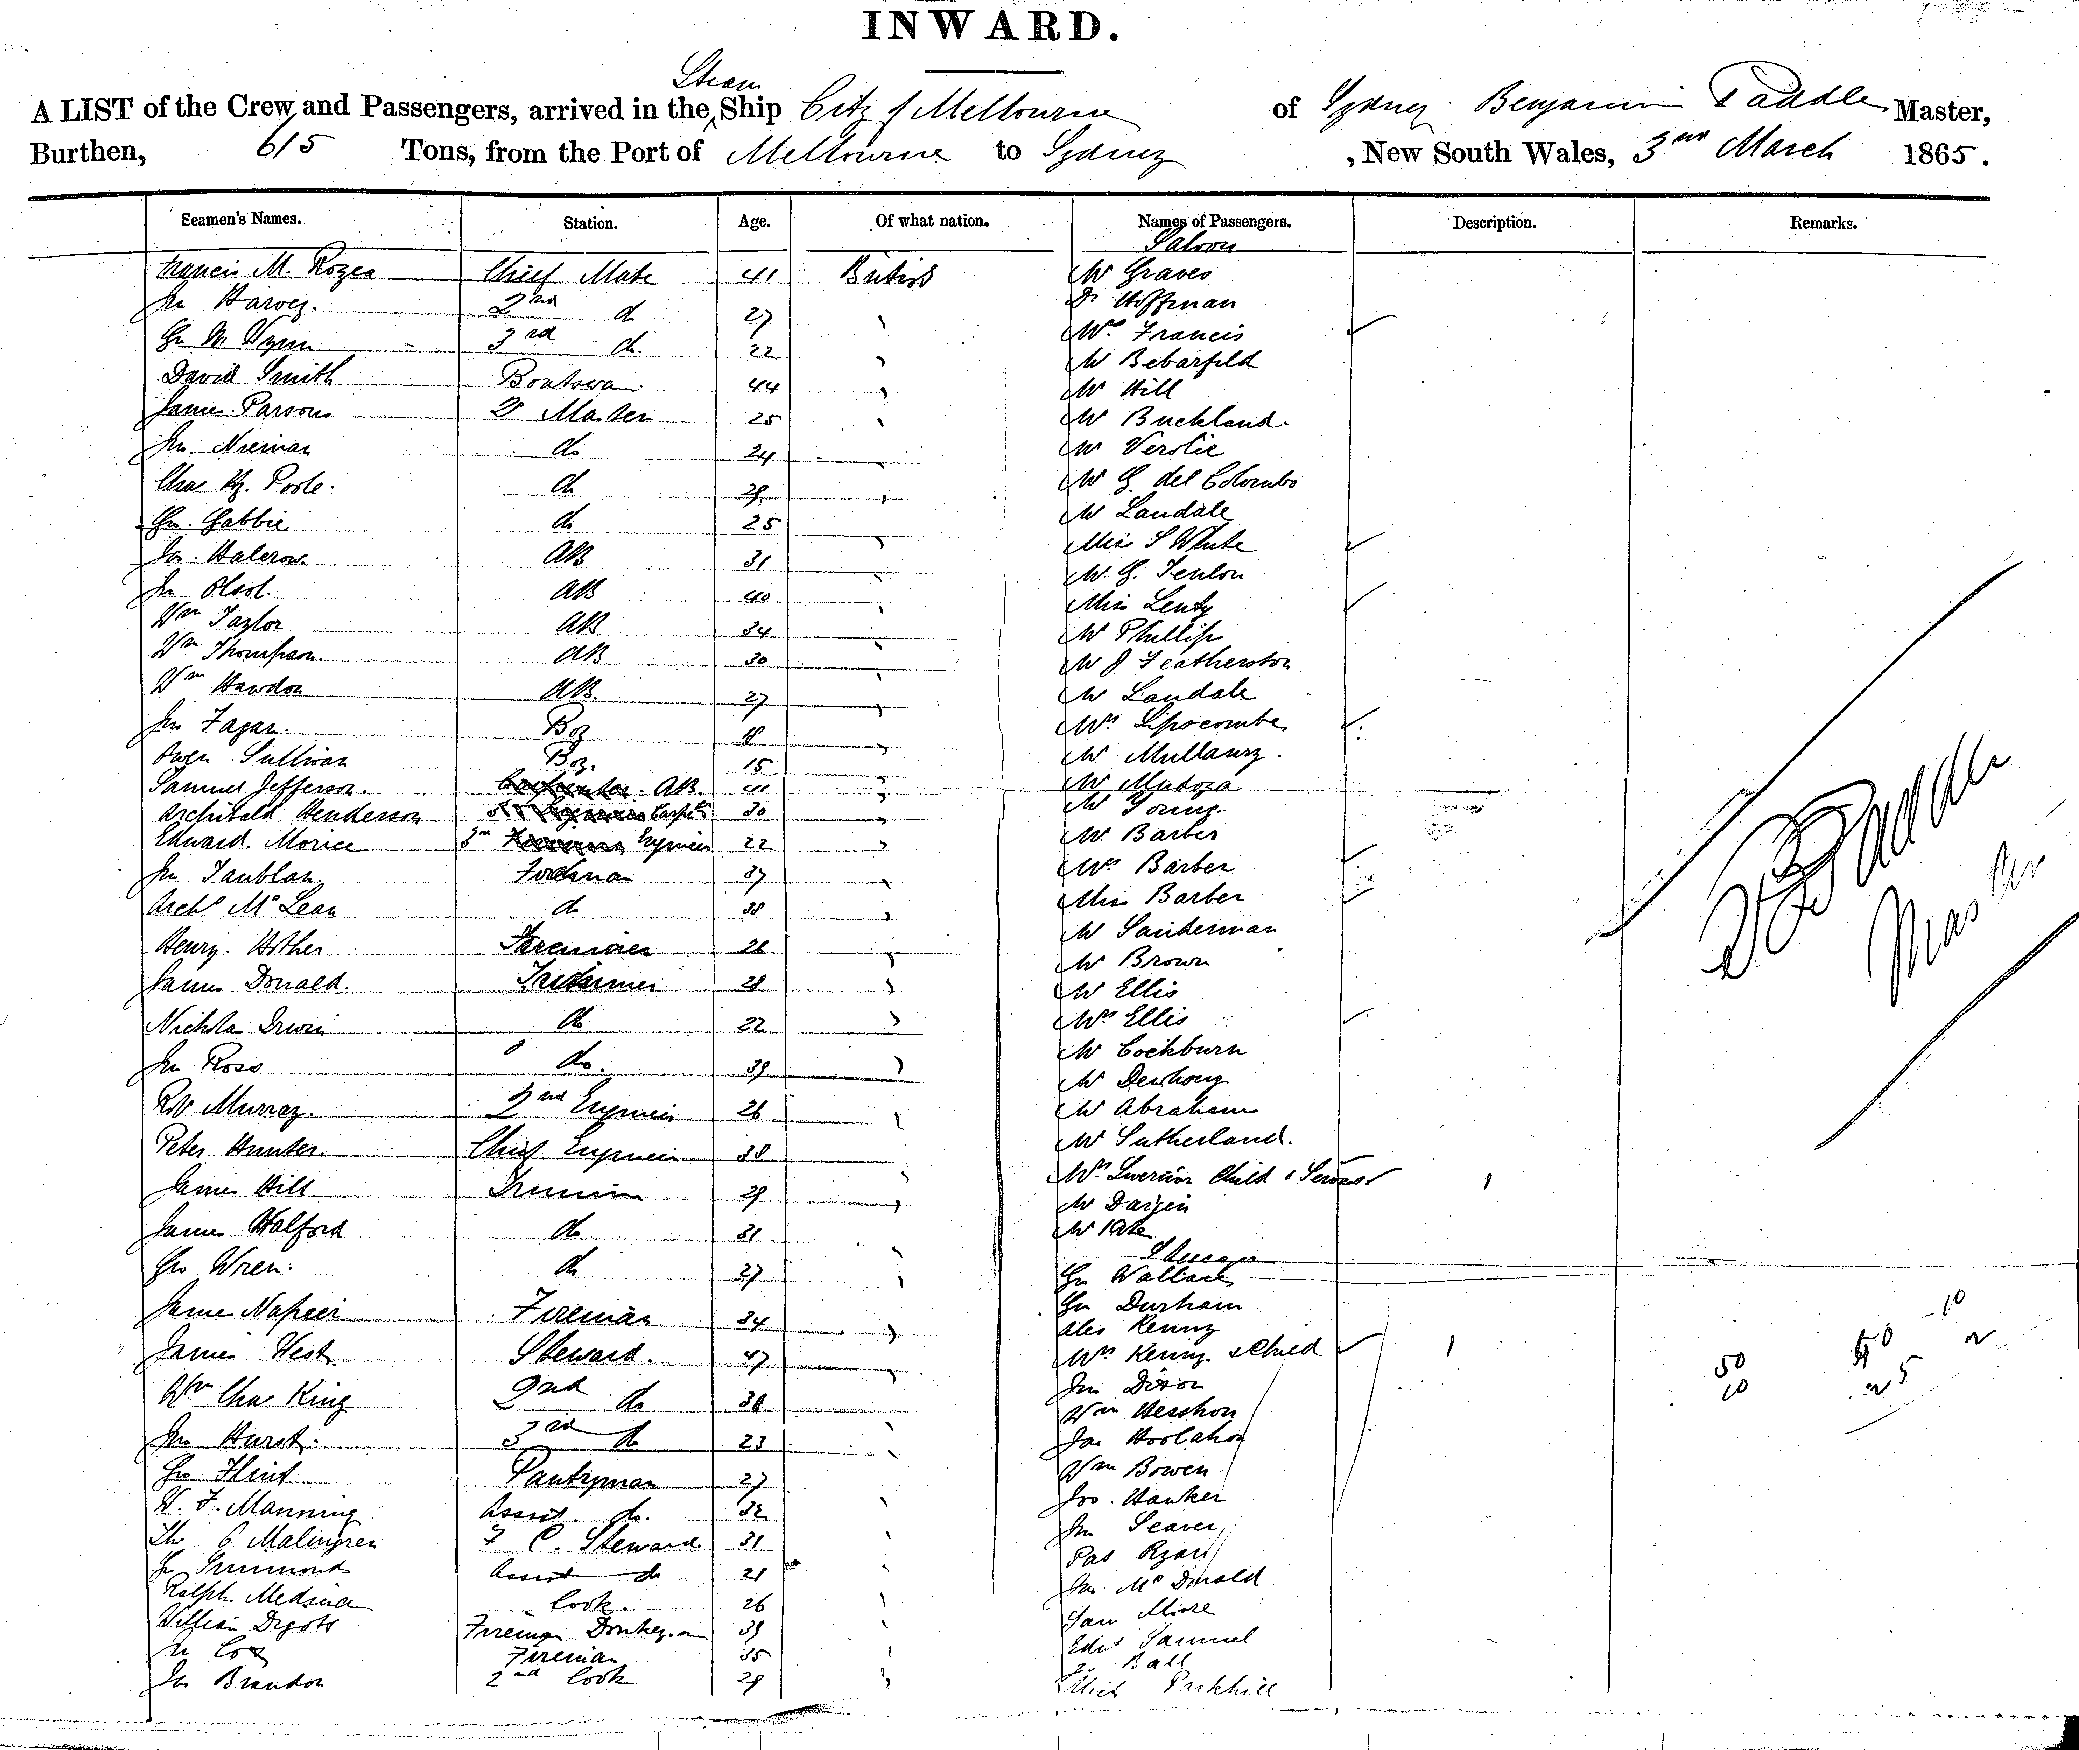 INWARD.
Steam
A LIST of the Crew and Passengers, arrived in the Ship City of Melbourne of Sydney Benjamin Paddle Master,
Burthen, 615 Tons, from the Port of Melbourne to Sydney , New South Wales, 3rd March 1865.
Seamen's Names. Station. Age. Of what nation. Names of Passengers. Description. Remarks.
Saloon
Francis M. Chief Mate 41 British Mr Graves
Jn Harvey. 2nd do 27 " Dr Hoffman
3rd do 22 " Mrs Francis
David Smith 44 " Mr Bebarfeld
James Parsons Qr Master 25 " Mr Hill
Jn do 24 " Mr Buckland.
Chas Hy. Poole. do 29 " Mr
Geo. Gabbie do 25 " Mr G. del Colombo
Jas. Halcrow AB 31 " Mr Landale
Jn AB 40 " Miss S White
Wm Taylor AB 34 " Mr G. Fenlon
Wm Thompson AB 30 " Miss Lenty
Wm Hawdon AB. 27 " Mr Phillips
Jn Fagan. Boy 18 " Mr J Featherston
Owen Sullivan Boy. 15 " Mr Landale
Samuel Jefferson. AB. 41 " Mrs Lipscombe
Archibald Henderson Carptr 30 " Mr Mullany.
Edward Morice 3rd Engineer 22 " Mr
Jn 37 " Mr Young.
Archd McLean do 38 " Mr Barber
Henry Fireman 26 " Mrs Barber
James Donald. Trimmer 28 " Miss Barber
Irwin do 22 " Mr Sanderman
Jn Ross do. 39 " Mr Brown
Robt Murray. 2nd Engineer 26 " Mr Ellis
Peter Hunter. Chief Engineer 38 " Mrs Ellis
James Hill 29 " Mr Cockburn
James Halford do 31 " Mr
Geo Wren. do 27 " Mr Abraham
James Napier Fireman 34 " Mr Sutherland.
James West Steward. 47 " Mrs Child & Servant 1
Wm Chas King 2nd do 38 " Mr
Jn Hurst. 3rd do 23 " Mr
Geo Flint Pantryman 27 Steerage
W. F. Manning Assist. do. 32 " Geo Wallace
F. C. Steward 31 " Geo Durham
Assist do 21 Alex Kenny
Ralph Cook. 26 " Mrs Kenny & Child 1
William Fireman Donkeyman 39 " Jn Dixon
Jn Cox Fireman 35 " Wm
Jas Brandon 2nd Cook 29 " Jas Hoolahan
Wm Bowen
Jos. Hawker
Jn Seaver
Pat Ryan
Jn. McDonald
Sam
Samuel
Ball
Parkhill
Paddle
Master
50
10